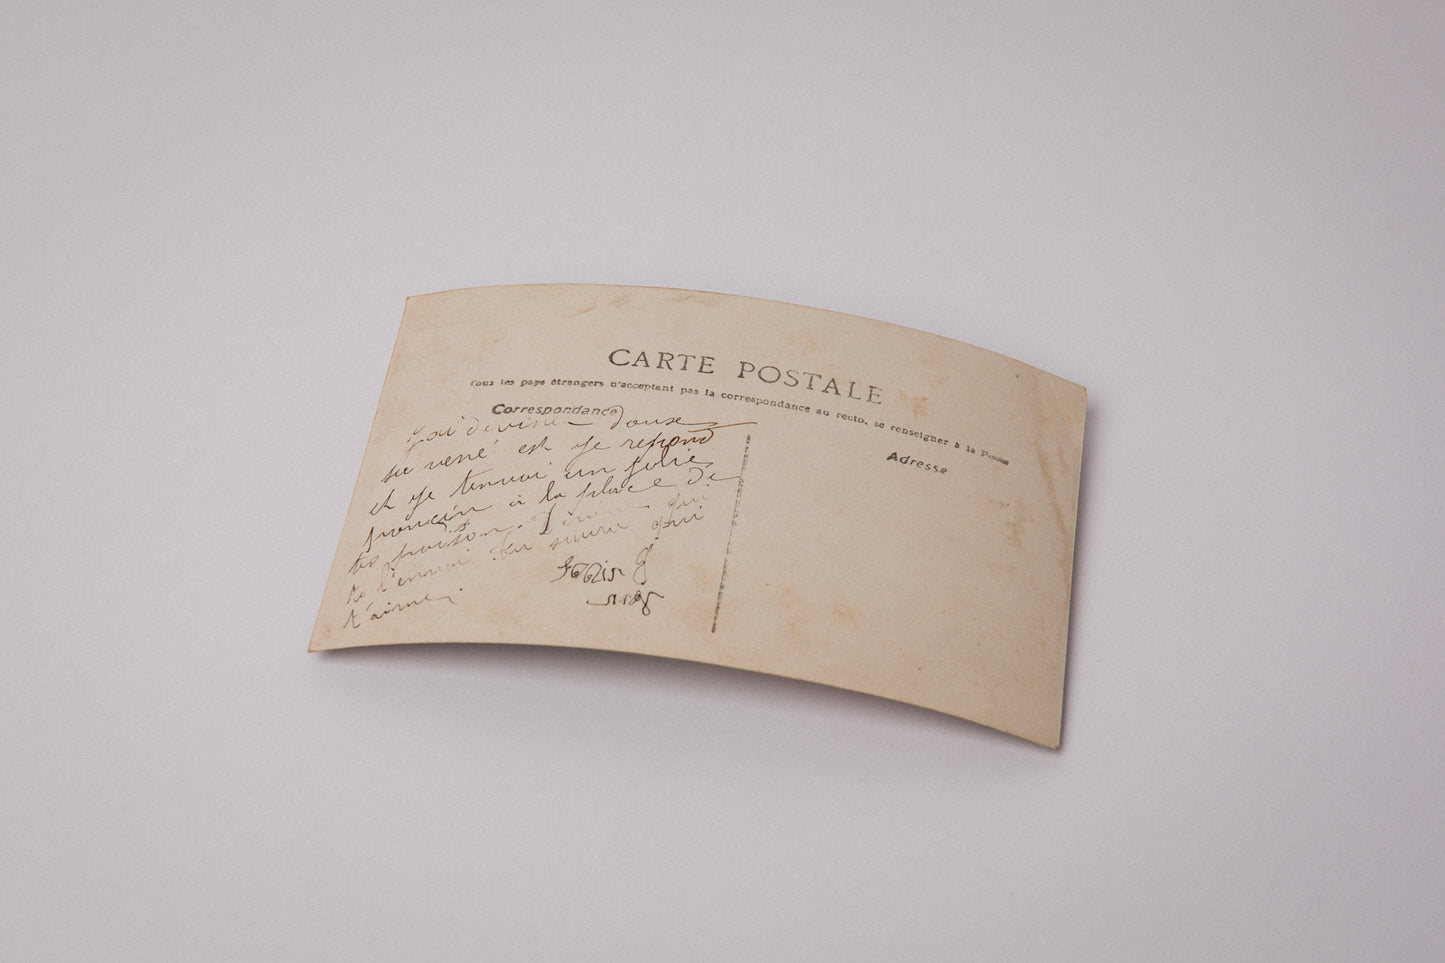 CARTE POSTALE
Tous les pays étrangers n'acceptant pas la correspondance au recto, se renseigner à la Poste
Correspondance
Adresse
J'ai deviné doux
su vené est je repond
et je tenvoi un jolie
a la place de
tes poison. qui
te l'envoi qui
t'aime.